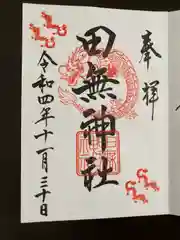 奉拝
田無神社
令和四年十一月三十日